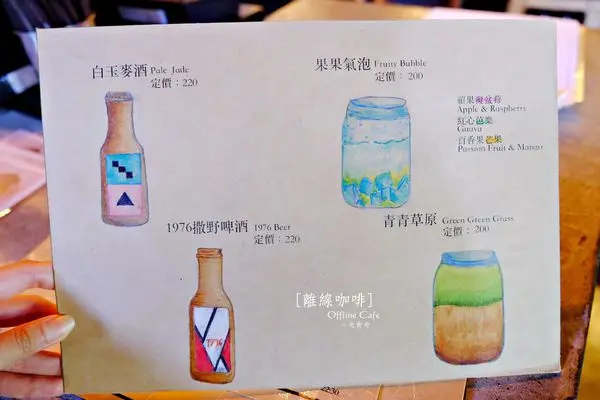 白玉麥酒 Pale Jade
定價：220
果果氣泡 Fruity Bubble
定價：200
蘋果覆盆莓
Apple & Raspberry
紅心芭樂
Guava
百香果芒果
Passion Fruit & Mango
1976撒野啤酒 1976 Beer
定價：220
1976
青青草原 Green Green Grass
定價：200
[離線咖啡]
Offline Cafe